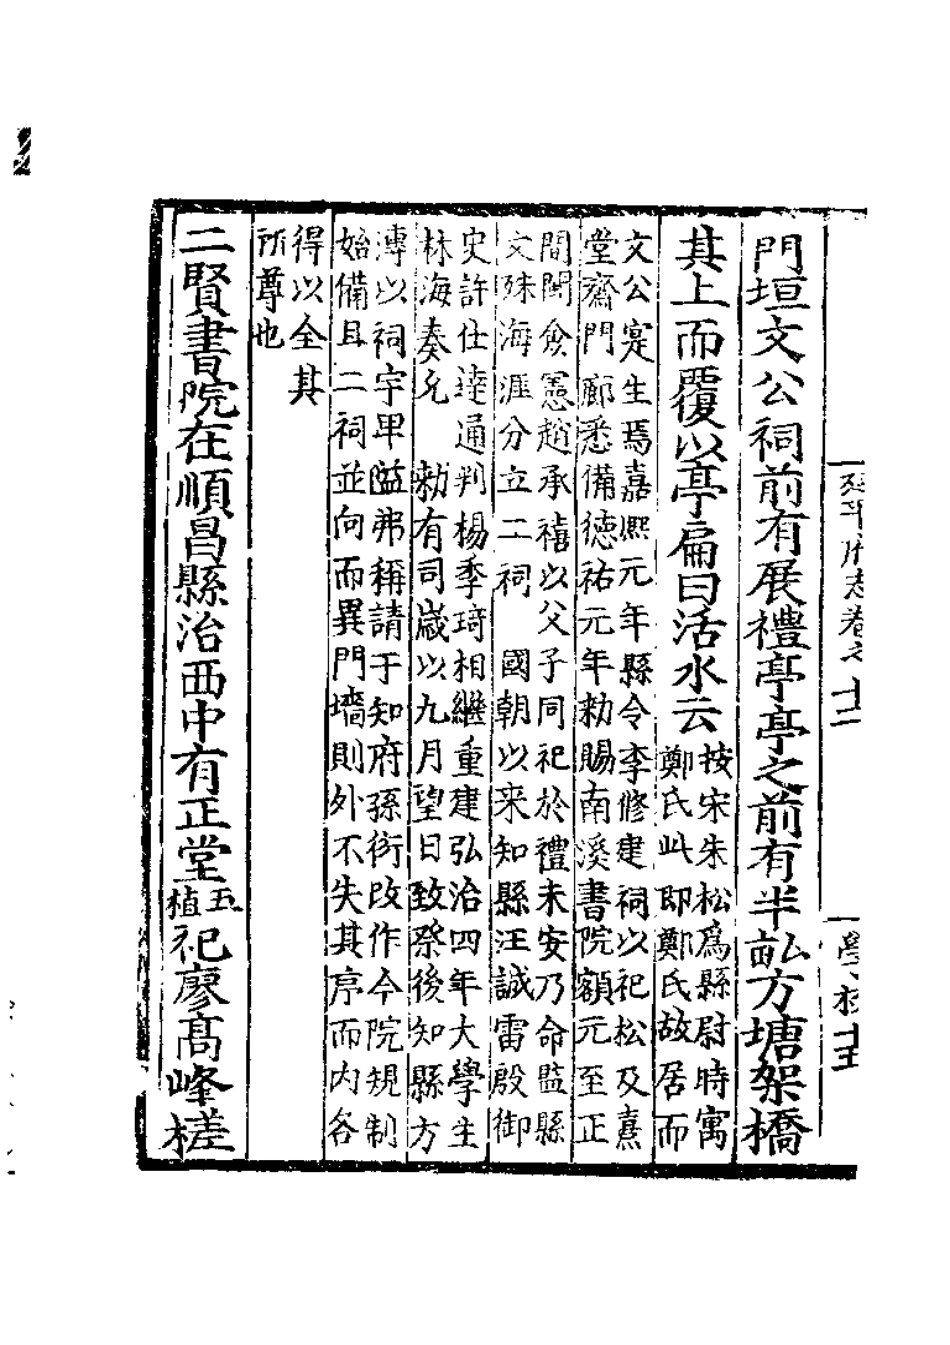 延平府志卷之十二
學校十五
門垣文公祠前有展禮亭亭之前有半畝方塘架橋
其上而覆以亭扁曰活水云
按宋朱松爲縣尉時寓
鄭氏此即鄭氏故居而
文公寔生焉嘉熙元年縣令李修建祠以祀松及熹
堂齋門廊悉備德祐元年勑賜南溪書院額元至正
間閩僉憲趙承禧以父子同祀於禮未安乃命監縣
文殊海涯分立二祠 國朝以来知縣汪誠雷殷御
史許仕逹通判楊季琦相繼重建弘治四年大學生
林海奏允 勑有司歲以九月望日致祭後知縣方
溥以祠宇卑隘弗稱請于知府孫衍改作今院規制
始備且二祠並向而異門墻則外不失其序而内各
得以全其
所尊也
二賢書院在順昌縣治西中有正堂
五
植
祀廖高峰槎